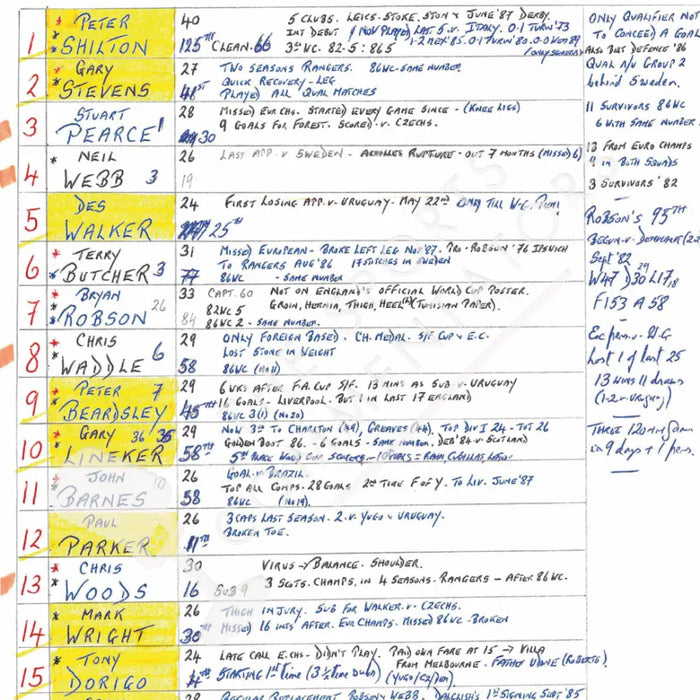 1 * PETER SHILTON
40 5 CLUBS. LEICS-STOKE. STON & JUNE '87 DERBY.
INT DEBUT
125TH CLEAN-66 3RD WC. 82-5: 86 5
ONLY QUALIFIER NOT
TO CONCEED A GOAL
ALSO BEST DEFENCE '86
2 * GARY STEVENS
27 TWO SEASONS RANGERS. 86WC-SAME NUMBER.
QUICK RECOVERY-LEG
PLAYED ALL QUAL MATCHES
QUAL GROUP 2
behind Sweden.
3 STUART PEARCE 1
28 MISSED EUR CHS. STARTED EVERY GAME SINCE - (KNEE LIGS)
30 9 GOALS FOR FOREST. SCORED. V. CZECHS.
11 SURVIVORS 86WC
6 WITH SAME NUMBER.
4 * NEIL WEBB 3
26 LAST APP. V SWEDEN - ACHILLES RUPTURE - OUT 7 MONTHS (MISSED 6)
19
13 FROM EURO CHAMPS
9 IN BOTH SQUADS
3 SURVIVORS '82
5 DES WALKER
24 FIRST LOSING APP. V. URUGUAY - MAY 22ND ONLY TILL W.C.
25TH
ROBSON'S 95TH
6 * TERRY BUTCHER 3
31 MISSED EUROPEAN - BROKE LEFT LEG NOV '87. PRO-ROBSON '76 IPSWICH
TO RANGERS AUG '86 17 STITCHES IN SWEDEN
77 86WC - SAME NUMBER
BEGUN V. DENMARK (2-2)
Sept '82
W47 D30 29 L17 18
7 * BRYAN ROBSON 26
33 CAPT. 60 NOT ON ENGLAND'S OFFICIAL WORLD CUP POSTER.
82WC 5 GROIN, HERNIA, THIGH, HEEL (TUNISIAN PAPER).
84 86WC 2 - SAME NUMBER.
F153 A58
8 * CHRIS WADDLE 6
29 ONLY FOREIGN BASED. CH. MEDAL. S/F CUP & E.C.
LOST STONE IN WEIGHT
58 86WC (NO 11)
Lost 1 of last 25
9 * PETER BEARDSLEY 7
29 6 WKS AFTER F.A. CUP S/F. 13 MINS AS SUB V. URUGUAY
16 GOALS - LIVERPOOL. BUT 1 IN LAST 17 ENGLAND)
45TH 86WC 3(1) (NO 20)
13 wins 11 draws
(1-2 v. Uruguay)
10 * GARY LINEKER 36 35
29 NOW 3RD TO CHARLTON (49), GREAVES (44). TOP DIV 1 24 - TOT 26
GOLDEN BOOT 86. - 6 GOALS - SAME NUMBER. DEB '84 V. SCOTLAND
58TH
THREE 120 min
in 9 days + 1 pens.
11 * JOHN BARNES 10
26 GOAL V. BRAZIL.
TOP ALL COMPS. 28 GOALS 2ND TIME F OF Y. TO LIV. JUNE '87
58 86WC (NO 19).
12 PAUL PARKER
26 3 CAPS LAST SEASON - 2. V. YUGO & URUGUAY.
11TH BROKEN TOE.
13 * CHRIS WOODS
30 VIRUS → BALANCE. SHOULDER.
16 SUB 9 3 SCOTS. CHAMPS. IN 4 SEASONS. RANGERS - AFTER 86WC.
14 * MARK WRIGHT
26 THIGH INJURY. SUB FOR WALKER. V. CZECHS.
30TH MISSED 16 INTS AFTER. EUR CHAMPS. MISSED 86WC - BROKEN
15 * TONY DORIGO
24 LATE CALL E.CHS - DIDN'T PLAY. PAID OWN FARE AT 15 → VILLA
FROM MELBOURNE - FATHER UDINE (ROBERTO)
4TH STARTING 1ST TIME (YUGO/CZ/DEN)
REGULAR REPLACEMENT ROBSON & WEBB. DALGLISH'S 1ST SIGNING SEPT 85